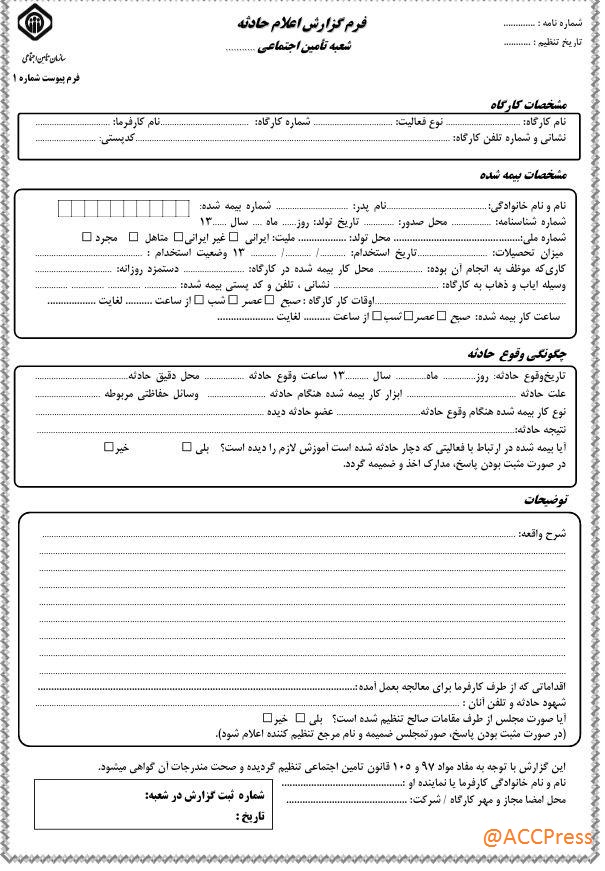 شماره نامه : .............
تاریخ تنظیم : ...........
فرم گزارش اعلام حادثه
شعبه تأمین اجتماعی ...........
سازمان تأمین اجتماعی
فرم پیوست شماره ۱
مشخصات کارگاه
نام کارگاه: .......................... نوع فعالیت: .......................... شماره کارگاه: .......................... نام کارفرما: ..........................
نشانی و شماره تلفن کارگاه: .......................... کدپستی: ..........................
مشخصات بیمه شده
نام و نام خانوادگی: .......................... نام پدر: .......................... شماره بیمه شده:
شماره شناسنامه: .............. محل صدور: .............. تاریخ تولد: روز...... ماه .... سال .....۱۳
شماره ملی:.......................... محل تولد: .................. ملیت: ایرانی □ غیر ایرانی□ متاهل □ مجرد □
میزان تحصیلات: ..........................تاریخ استخدام: ........../........./ ......... ۱۳ وضعیت استخدام : ..........................
کاری‌که موظف به انجام آن بوده: .................. محل کار بیمه شده در کارگاه: .................. دستمزد روزانه: ..................
وسیله ایاب و ذهاب به کارگاه: .......................... نشانی ، تلفن و کد پستی بیمه شده: ..........................
..........................اوقات کار کارگاه : صبح □ عصر □ شب □ از ساعت ......... لغایت ..................
ساعت کار بیمه شده: صبح □عصر□شب□ از ساعت .......... لغایت ....................
چگونگی وقوع حادثه
تاریخ‌وقوع حادثه: روز............ ماه............ سال ........۱۳ ساعت وقوع حادثه .............. محل دقیق حادثه..........................
علت حادثه .......................... ابزار کار بیمه شده هنگام حادثه .................. وسائل حفاظتی مربوطه ..................
نوع کار بیمه شده هنگام وقوع حادثه.......................... عضو حادثه دیده ..........................
نتیجه حادثه:..........................
آیا بیمه شده در ارتباط با فعالیتی که دچار حادثه شده است آموزش لازم را دیده است؟ بلی □ خیر□
در صورت مثبت بودن پاسخ، مدارک اخذ و ضمیمه گردد.
توضیحات
شرح واقعه: ..........................
اقداماتی که از طرف کارفرما برای معالجه بعمل آمده:..........................
شهود حادثه و تلفن آنان : ..........................
آیا صورت مجلس از طرف مقامات صالح تنظیم شده است؟ بلی □ خیر□
(در صورت مثبت بودن پاسخ، صورتمجلس ضمیمه و نام مرجع تنظیم کننده اعلام شود).
این گزارش با توجه به مفاد مواد ۹۷ و ۱۰۵ قانون تامین اجتماعی تنظیم گردیده و صحت مندرجات آن گواهی میشود.
نام و نام خانوادگی کارفرما یا نماینده او :..........................
محل امضا مجاز و مهر کارگاه / شرکت: ..........................
شماره ثبت گزارش در شعبه:
تاریخ :
@ACCPress